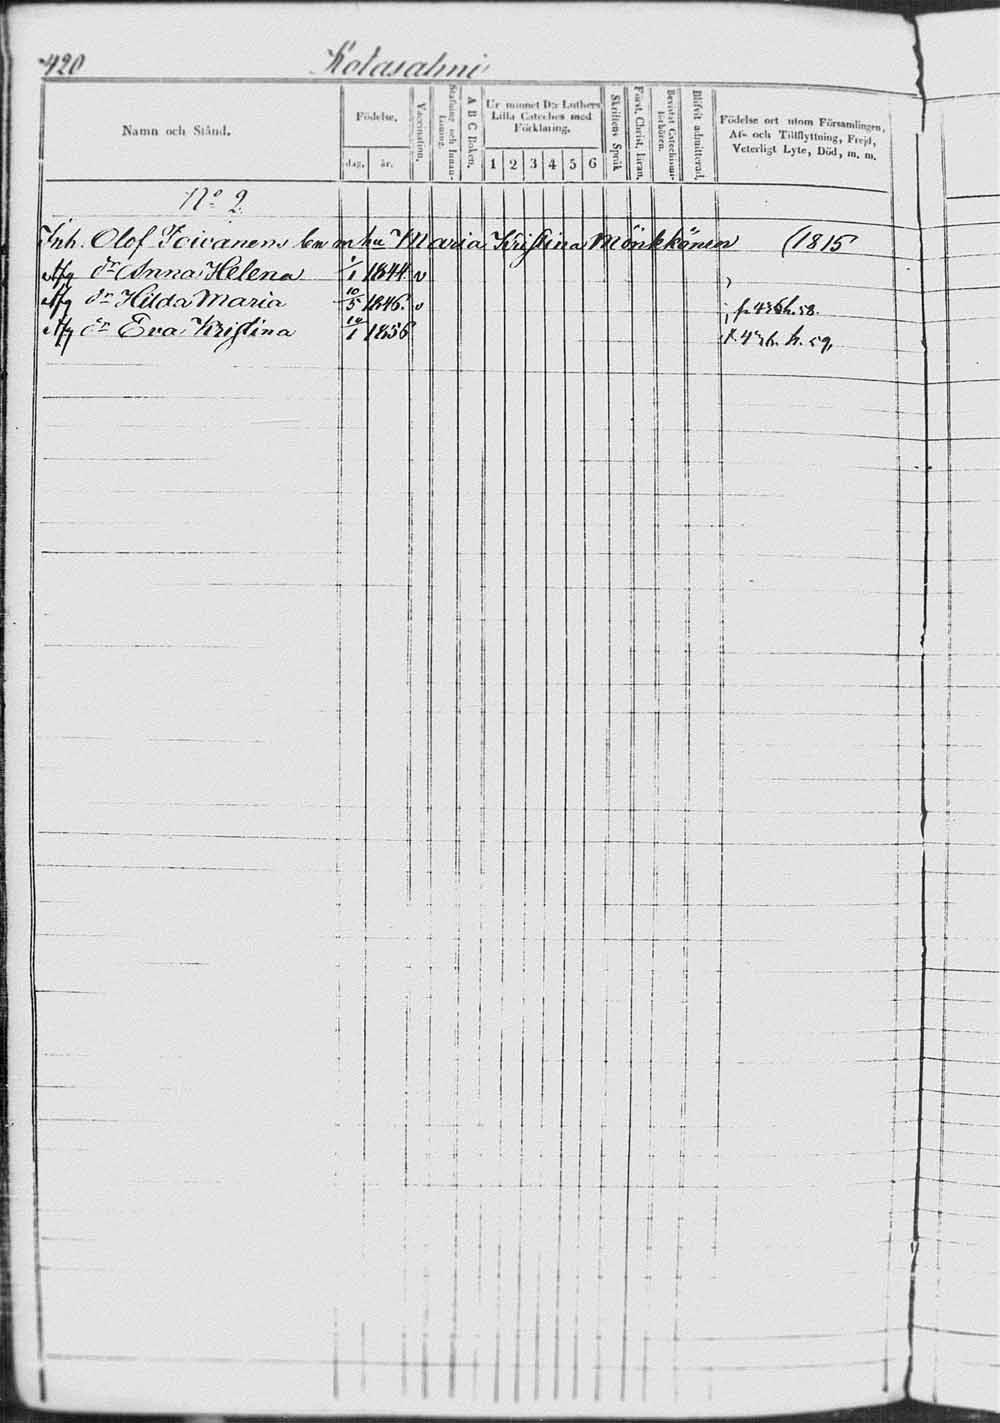 420 Kotasalmi
Namn och Stånd.
Födelse,
dag, år.
Vaccination.
Stafning och Innanläsning.
A B C Boken.
Ur minnet D:r Luthers
Lilla Cateches med
Förklaring.
1 2 3 4 5 6
Skriftens Språk
Först. Christ. läran.
Bevistat Catechismi-förhören.
Blifvit admitterad.
Födelse ort utom Församlingen,
Af- och Tillflyttning, Frejd,
Veterligt Lyte, Död, m. m.
No 2.
Inh. Olof Toivanens hu Maria Kristina Mönkkönen (1815
Afg dr Anna Helena 1/1 1844 v
Afg dr Hilda Maria 10/5 1846. v f. 436 h. 58.
Afg dr Eva Kristina 14/1 1856 f. 436. h. 59,